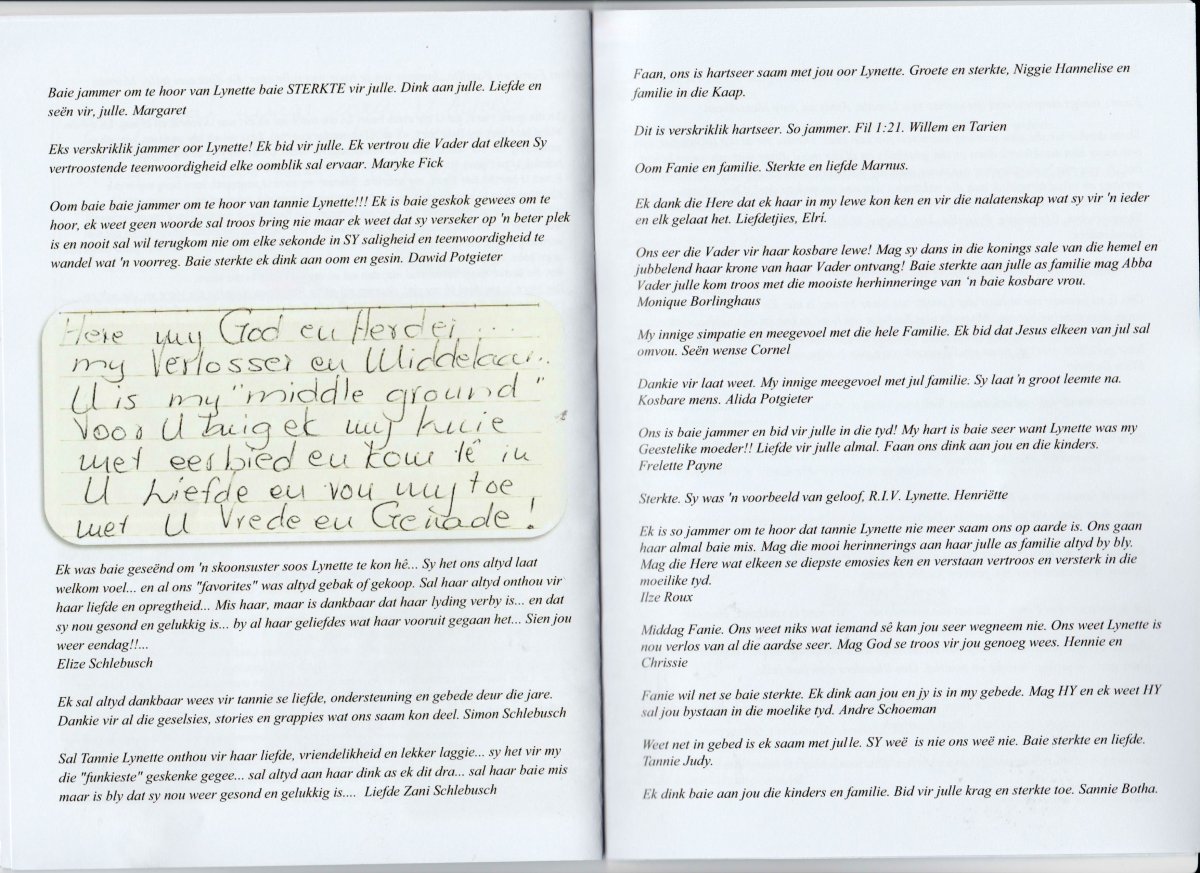 Baie jammer om te hoor van Lynette baie STERKTE vir julle. Dink aan julle. Liefde en
seën vir, julle. Margaret
Eks verskriklik jammer oor Lynette! Ek bid vir julle. Ek vertrou die Vader dat elkeen Sy
vertroostende teenwoordigheid elke oomblik sal ervaar. Maryke Fick
Oom baie baie jammer om te hoor van tannie Lynette!!! Ek is baie geskok gewees om te
hoor, ek weet geen woorde sal troos bring nie maar ek weet dat sy verseker op 'n beter plek
is en nooit sal wil terugkom nie om elke sekonde in SY saligheid en teenwoordigheid te
wandel wat 'n voorreg. Baie sterkte ek dink aan oom en gesin. Dawid Potgieter
Here my God en Herder ...
my Verlosser en Middelaar..
U is my "middle ground"
Voor U buig ek my knie
met eerbied en kom lê in
U Liefde en vou my toe
met U Vrede en Genade!
Ek was baie geseënd om 'n skoonsuster soos Lynette te kon hê... Sy het ons altyd laat
welkom voel... en al ons "favorites" was altyd gebak of gekoop. Sal haar altyd onthou vir
haar liefde en opregtheid... Mis haar, maar is dankbaar dat haar lyding verby is... en dat
sy nou gesond en gelukkig is... by al haar geliefdes wat haar vooruit gegaan het... Sien jou
weer eendag!!...
Elize Schlebusch
Ek sal altyd dankbaar wees vir tannie se liefde, ondersteuning en gebede deur die jare.
Dankie vir al die geselsies, stories en grappies wat ons saam kon deel. Simon Schlebusch
Sal Tannie Lynette onthou vir haar liefde, vriendelikheid en lekker laggie... sy het vir my
die "funkieste" geskenke gegee... sal altyd aan haar dink as ek dit dra... sal haar baie mis
maar is bly dat sy nou weer gesond en gelukkig is.... Liefde Zani Schlebusch
Faan, ons is hartseer saam met jou oor Lynette. Groete en sterkte, Niggie Hannelise en
familie in die Kaap.
Dit is verskriklik hartseer. So jammer. Fil 1:21. Willem en Tarien
Oom Fanie en familie. Sterkte en liefde Marnus.
Ek dank die Here dat ek haar in my lewe kon ken en vir die nalatenskap wat sy vir 'n ieder
en elk gelaat het. Liefdetjies, Elrí.
Ons eer die Vader vir haar kosbare lewe! Mag sy dans in die konings sale van die hemel en
jubbelend haar krone van haar Vader ontvang! Baie sterkte aan julle as familie mag Abba
Vader julle kom troos met die mooiste herhinneringe van 'n baie kosbare vrou.
Monique Borlinghaus
My innige simpatie en meegevoel met die hele Familie. Ek bid dat Jesus elkeen van jul sal
omvou. Seën wense Cornel
Dankie vir laat weet. My innige meegevoel met jul familie. Sy laat 'n groot leemte na.
Kosbare mens. Alida Potgieter
Ons is baie jammer en bid vir julle in die tyd! My hart is baie seer want Lynette was my
Geestelike moeder!! Liefde vir julle almal. Faan ons dink aan jou en die kinders.
Frelette Payne
Sterkte. Sy was 'n voorbeeld van geloof, R.I.V. Lynette. Henriëtte
Ek is so jammer om te hoor dat tannie Lynette nie meer saam ons op aarde is. Ons gaan
haar almal baie mis. Mag die mooi herinnerings aan haar julle as familie altyd by bly.
Mag die Here wat elkeen se diepste emosies ken en verstaan vertroos en versterk in die
moeilike tyd.
Ilze Roux
Middag Fanie. Ons weet niks wat iemand sê kan jou seer wegneem nie. Ons weet Lynette is
nou verlos van al die aardse seer. Mag God se troos vir jou genoeg wees. Hennie en
Chrissie
Fanie wil net se baie sterkte. Ek dink aan jou en jy is in my gebede. Mag HY en ek weet HY
sal jou bystaan in die moelike tyd. Andre Schoeman
Weet net in gebed is ek saam met julle. SY weë is nie ons weë nie. Baie sterkte en liefde.
Tannie Judy.
Ek dink baie aan jou die kinders en familie. Bid vir julle krag en sterkte toe. Sannie Botha.